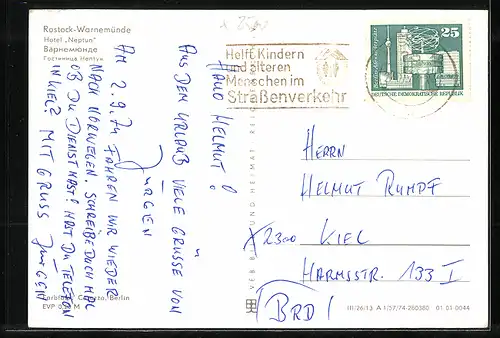 x 2300
Rostock-Warnemünde
Hotel „Neptun"
Варнемюнде
Гостиница Нептун
Helft Kindern
und älteren
Menschen im
Straßenverkehr
25
DEUTSCHE DEMOKRATISCHE REPUBLIK
HALLO HELMUT!
AUS DEM URLAUB VIELE GRÜSSE VON
JÜRGEN
AM 2.9.74 FAHREN WIR WIEDER
NACH NORWEGEN. SCHREIBE DOCH MAL
OB DU DIENST HAST! HAST DU TELEFON
IN KIEL? MIT GRUSS JÜRGEN
HERRN
HELMUT RUMPF
X 2300 KIEL
HARMSSTR. 133 I
BRD!
VEB BILD UND HEIMAT REI
Berlin
EVP M
III/26/13 A 1/57/74-260380 01 01 0044